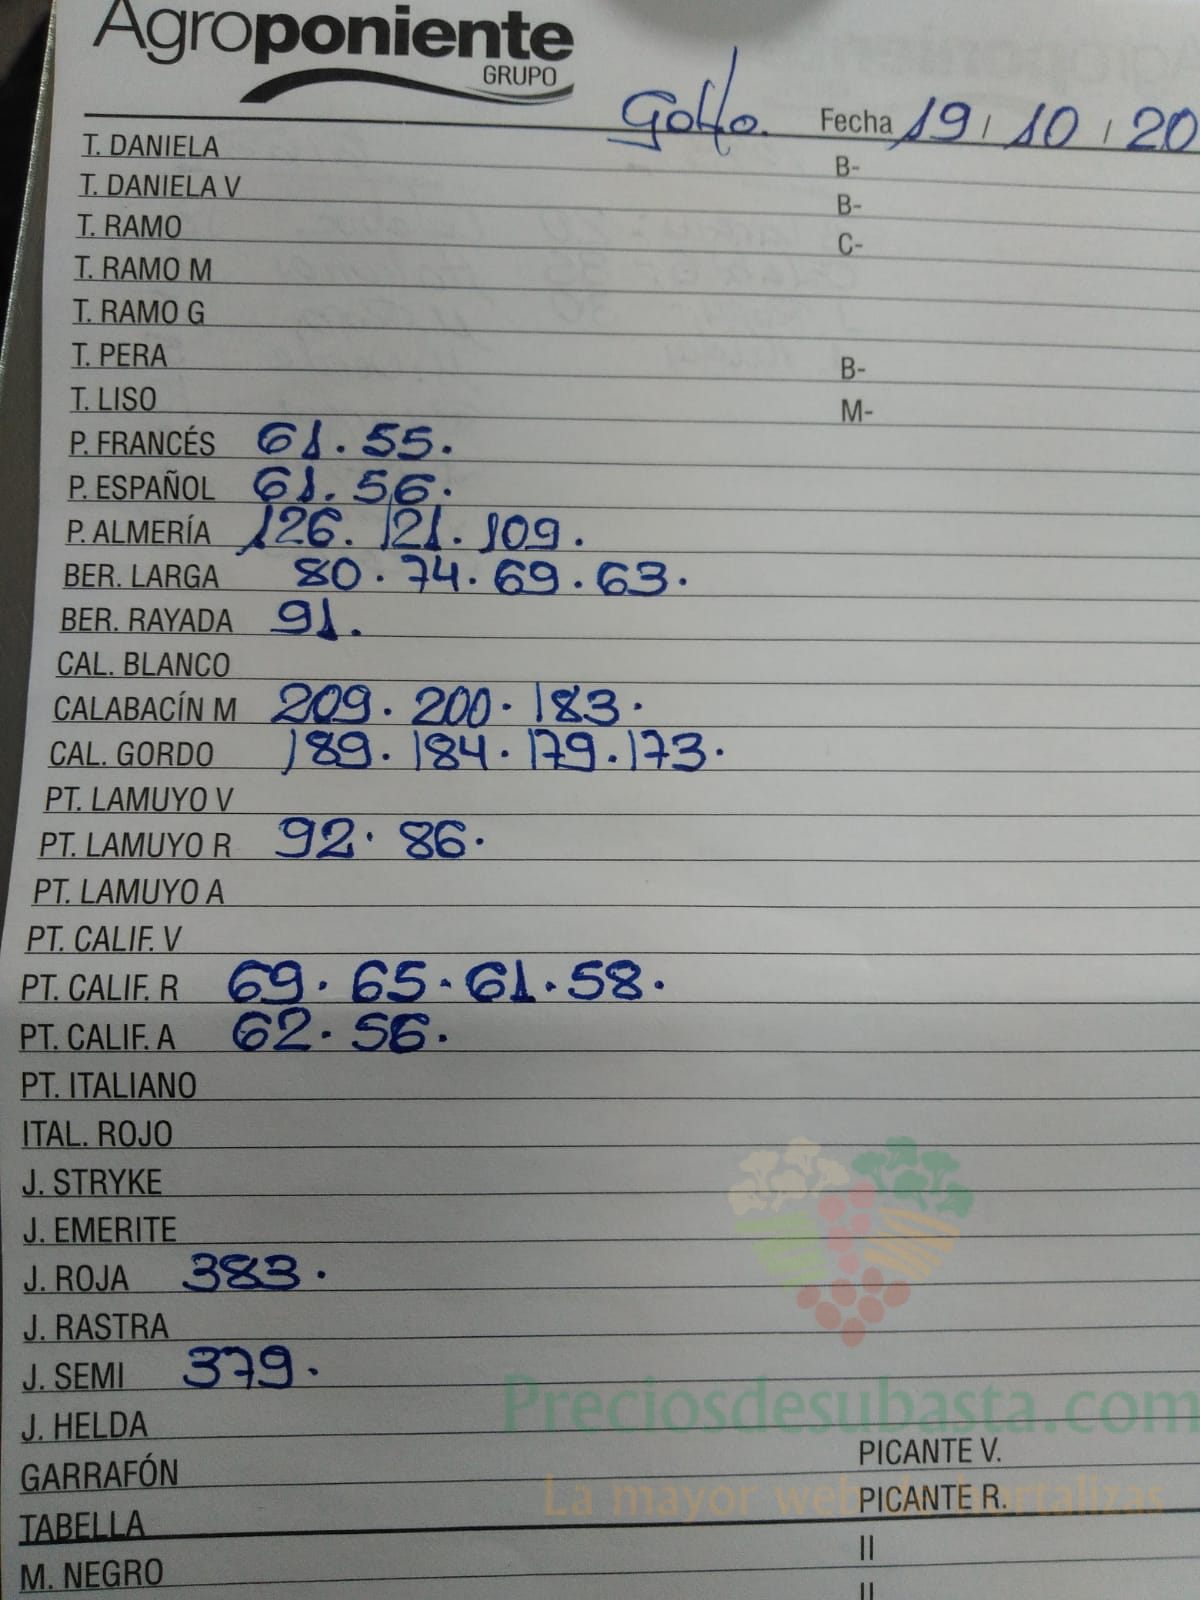 Agroponiente
GRUPO
Golfo. Fecha 19 / 10 / 20
T. DANIELA B-
T. DANIELA V B-
T. RAMO C-
T. RAMO M
T. RAMO G
T. PERA B-
T. LISO M-
P. FRANCÉS 61. 55.
P. ESPAÑOL 61. 56.
P. ALMERÍA 126. 121. 109.
BER. LARGA 80. 74. 69. 63.
BER. RAYADA 91.
CAL. BLANCO
CALABACÍN M 209. 200. 183.
CAL. GORDO 189. 184. 179. 173.
PT. LAMUYO V
PT. LAMUYO R 92. 86.
PT. LAMUYO A
PT. CALIF. V
PT. CALIF. R 69. 65. 61. 58.
PT. CALIF. A 62. 56.
PT. ITALIANO
ITAL. ROJO
J. STRYKE
J. EMERITE
J. ROJA 383.
J. RASTRA
J. SEMI 379.
Preciosdesubasta.com
J. HELDA
PICANTE V.
GARRAFÓN
La mayor web de hortalizas
PICANTE R.
TABELLA
II
M. NEGRO
II